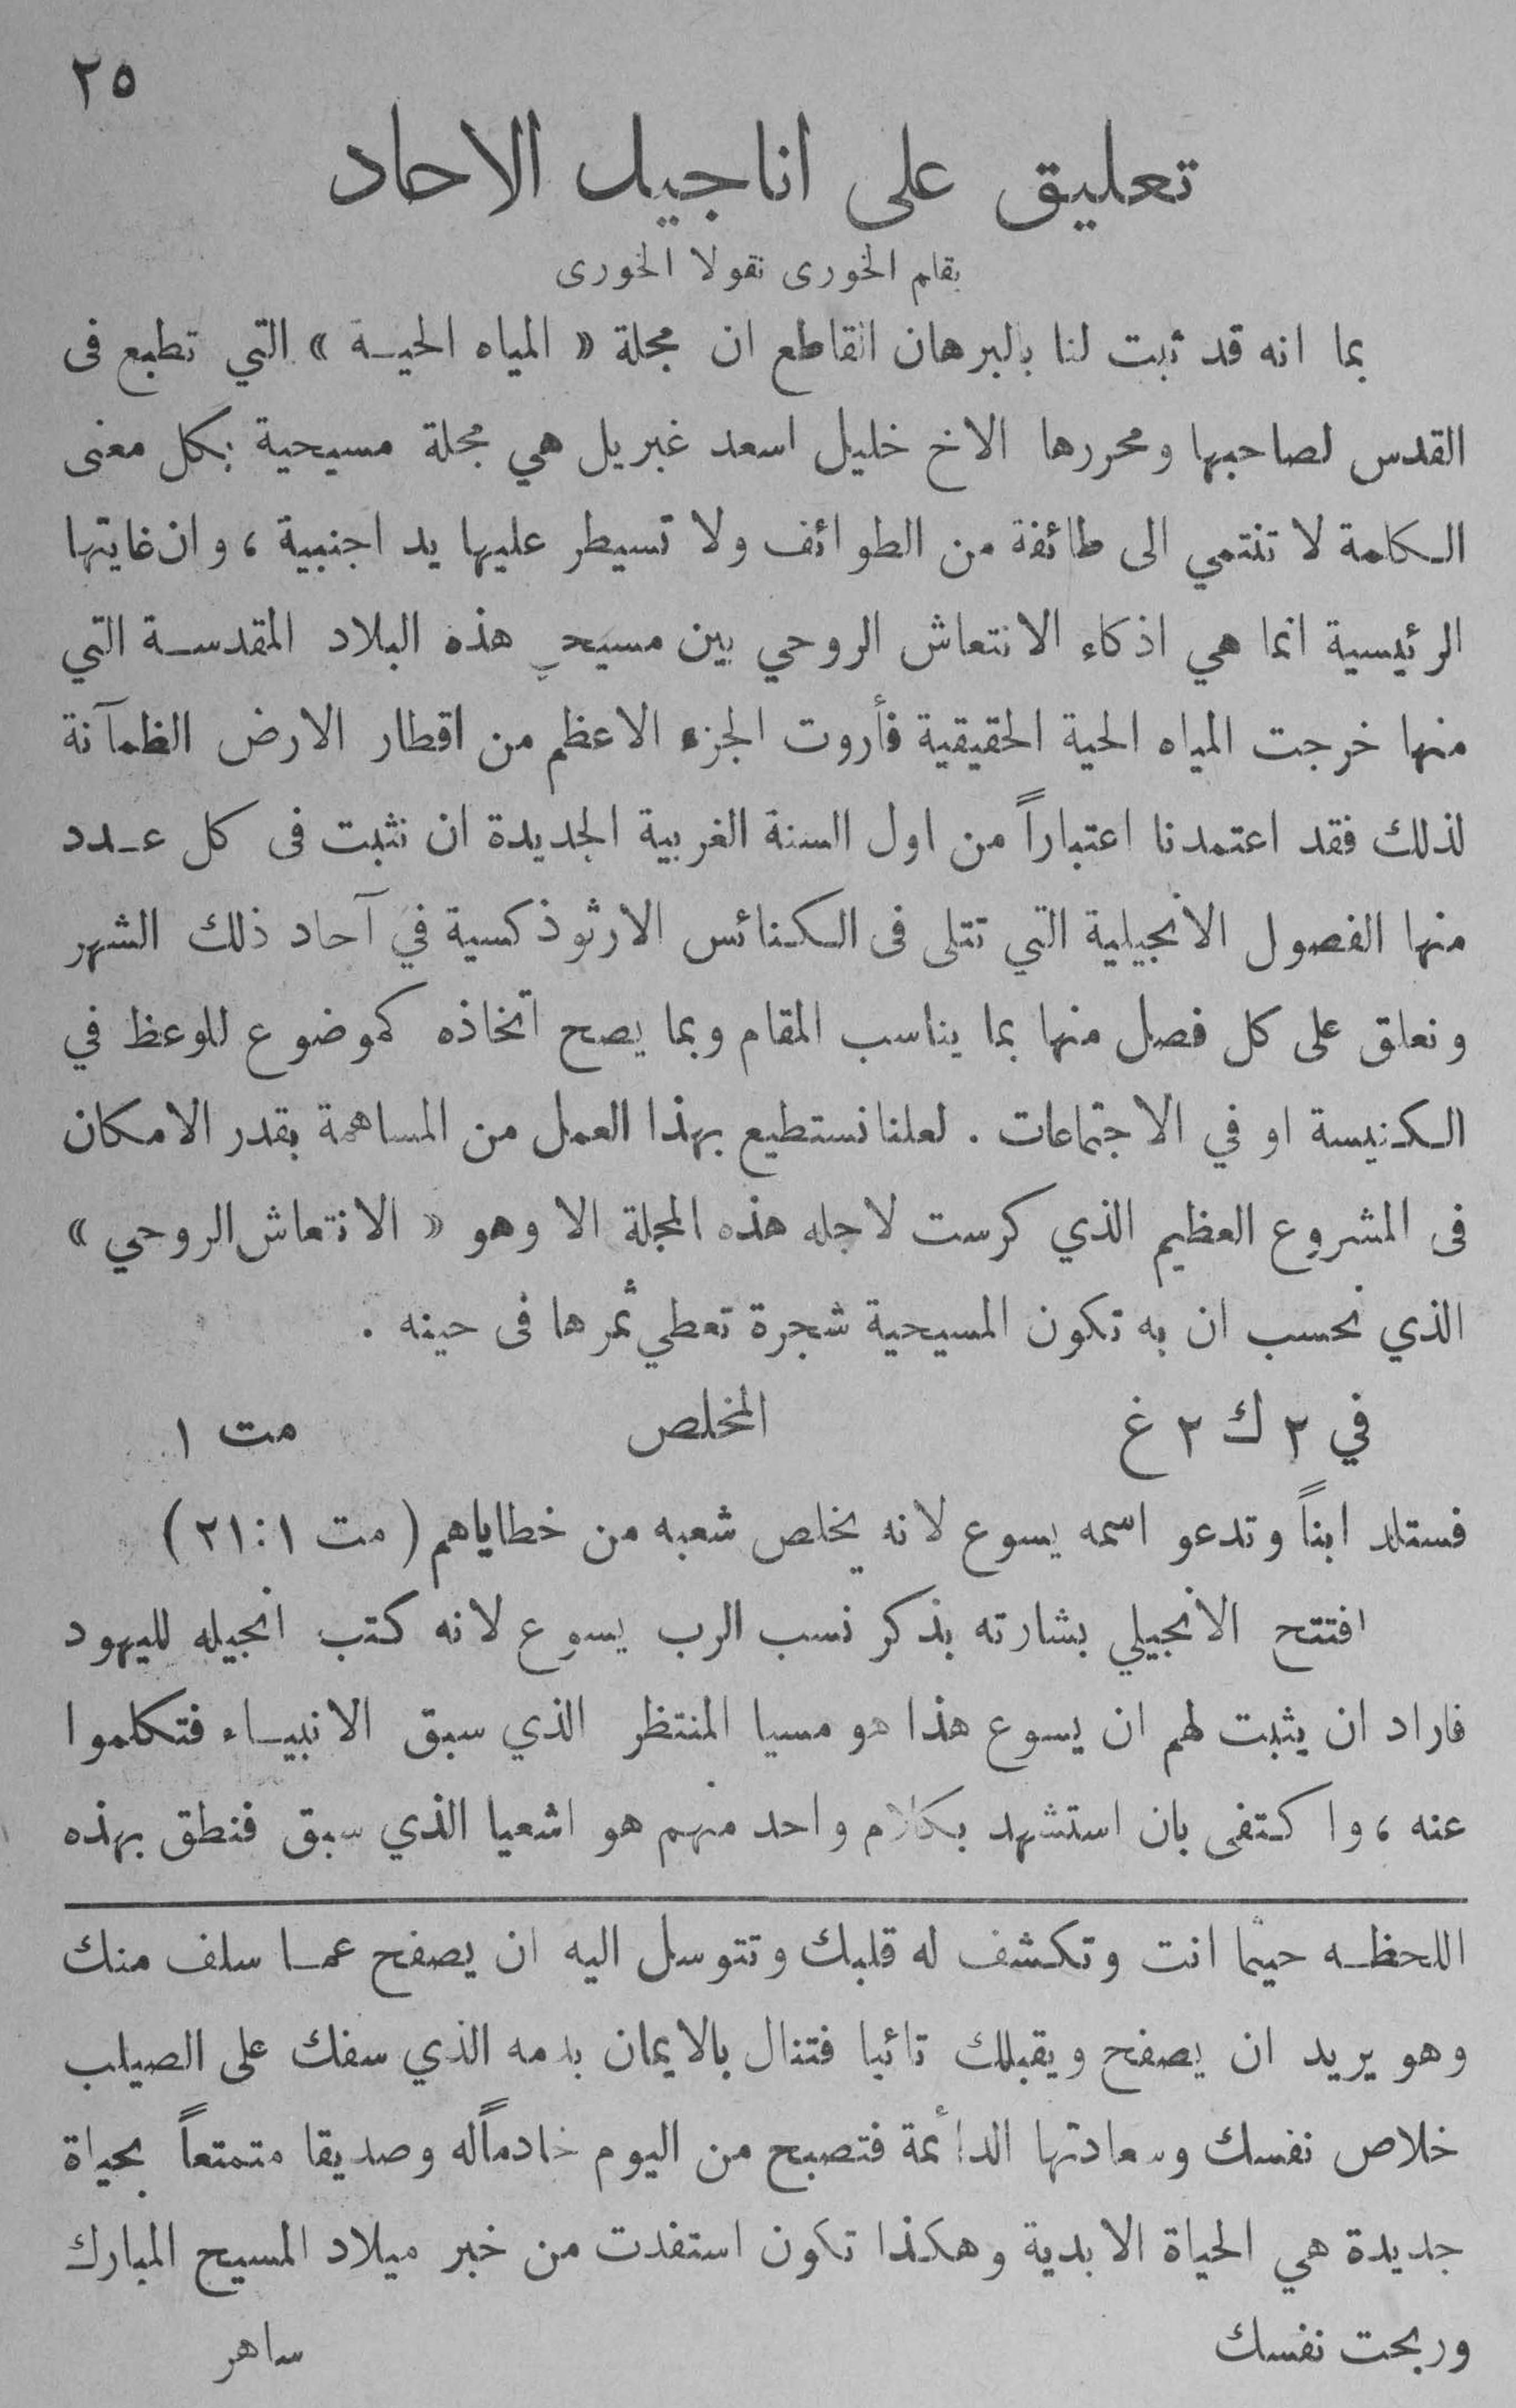 ٢٥
تعليق على اناجيل الاحاد
بقلم الخورى نقولا الخورى
بما انه قد ثبت لنا بالبرهان القاطع ان مجلة « المياه الحيــة » التي تطبع فى
القدس لصاحبها ومحررها الاخ خليل اسعد غبريل هي مجلة مسيحية بكل معنى
الكلمة لا تنتمي الى طائفة من الطوائف ولا تسيطر عليها يد اجنبية ، وان غايتها
الرئيسية انما هي اذكاء الانتعاش الروحي بين مسيحي هذه البلاد المقدســة التي
منها خرجت المياه الحية الحقيقية فأروت الجزء الاعظم من اقطار الارض الظمآنة
لذلك فقد اعتمدنا اعتباراً من اول السنة الغربية الجديدة ان نثبت فى كل عـدد
منها الفصول الانجيلية التي تتلى فى الكنائس الارثوذكسية في آحاد ذلك الشهر
ونعلق على كل فصل منها بما يناسب المقام وبما يصح اتخاذه كموضوع للوعظ في
الكنيسة او في الاجتماعات . لعلنا نستطيع بهذا العمل من المساهمة بقدر الامكان
فى المشروع العظيم الذي كرست لاجله هذه المجلة الا وهو « الانتعاش الروحي »
الذي نحسب ان به تكون المسيحية شجرة تعطي ثمرها فى حينه .
في ٢ ك ٢ غ المخلص مت ١
فستلد ابناً وتدعو اسمه يسوع لانه يخلص شعبه من خطاياهم ( مت ١ : ٢١ )
افتتح الانجيلي بشارته بذكر نسب الرب يسوع لانه كتب انجيله لليهود
فاراد ان يثبت لهم ان يسوع هذا هو مسيا المنتظر الذي سبق الانبيــاء فتكلموا
عنه ، واكتفى بان استشهد بكلام واحد منهم هو اشعيا الذي سبق فنطق بهذه
اللحظــه حيثما انت وتكشف له قلبك وتتوسل اليه ان يصفح عمــا سلف منك
وهو يريد ان يصفح ويقبلك تائبا فتنال بالايمان بدمه الذي سفك على الصيلب
خلاص نفسك وسعادتها الدائمة فتصبح من اليوم خادماً له وصديقا متمتعاً بحياة
جديدة هي الحياة الابدية وهكذا تكون استفدت من خبر ميلاد المسيح المبارك
وربحت نفسك ساهر